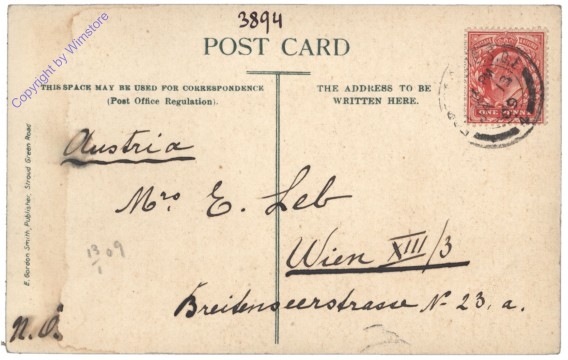 3894
POST CARD
THIS SPACE MAY BE USED FOR CORRESPONDENCE
(Post Office Regulation).
THE ADDRESS TO BE
WRITTEN HERE.
Austria
Mrs E. Leb
Wien XIII/3
Breitenseerstrasse No 23. a.
13/1 09
N.Ö.
E. Gordon Smith, Publisher, Stroud Green Road
Copyright by Wimstore
ONE PENNY